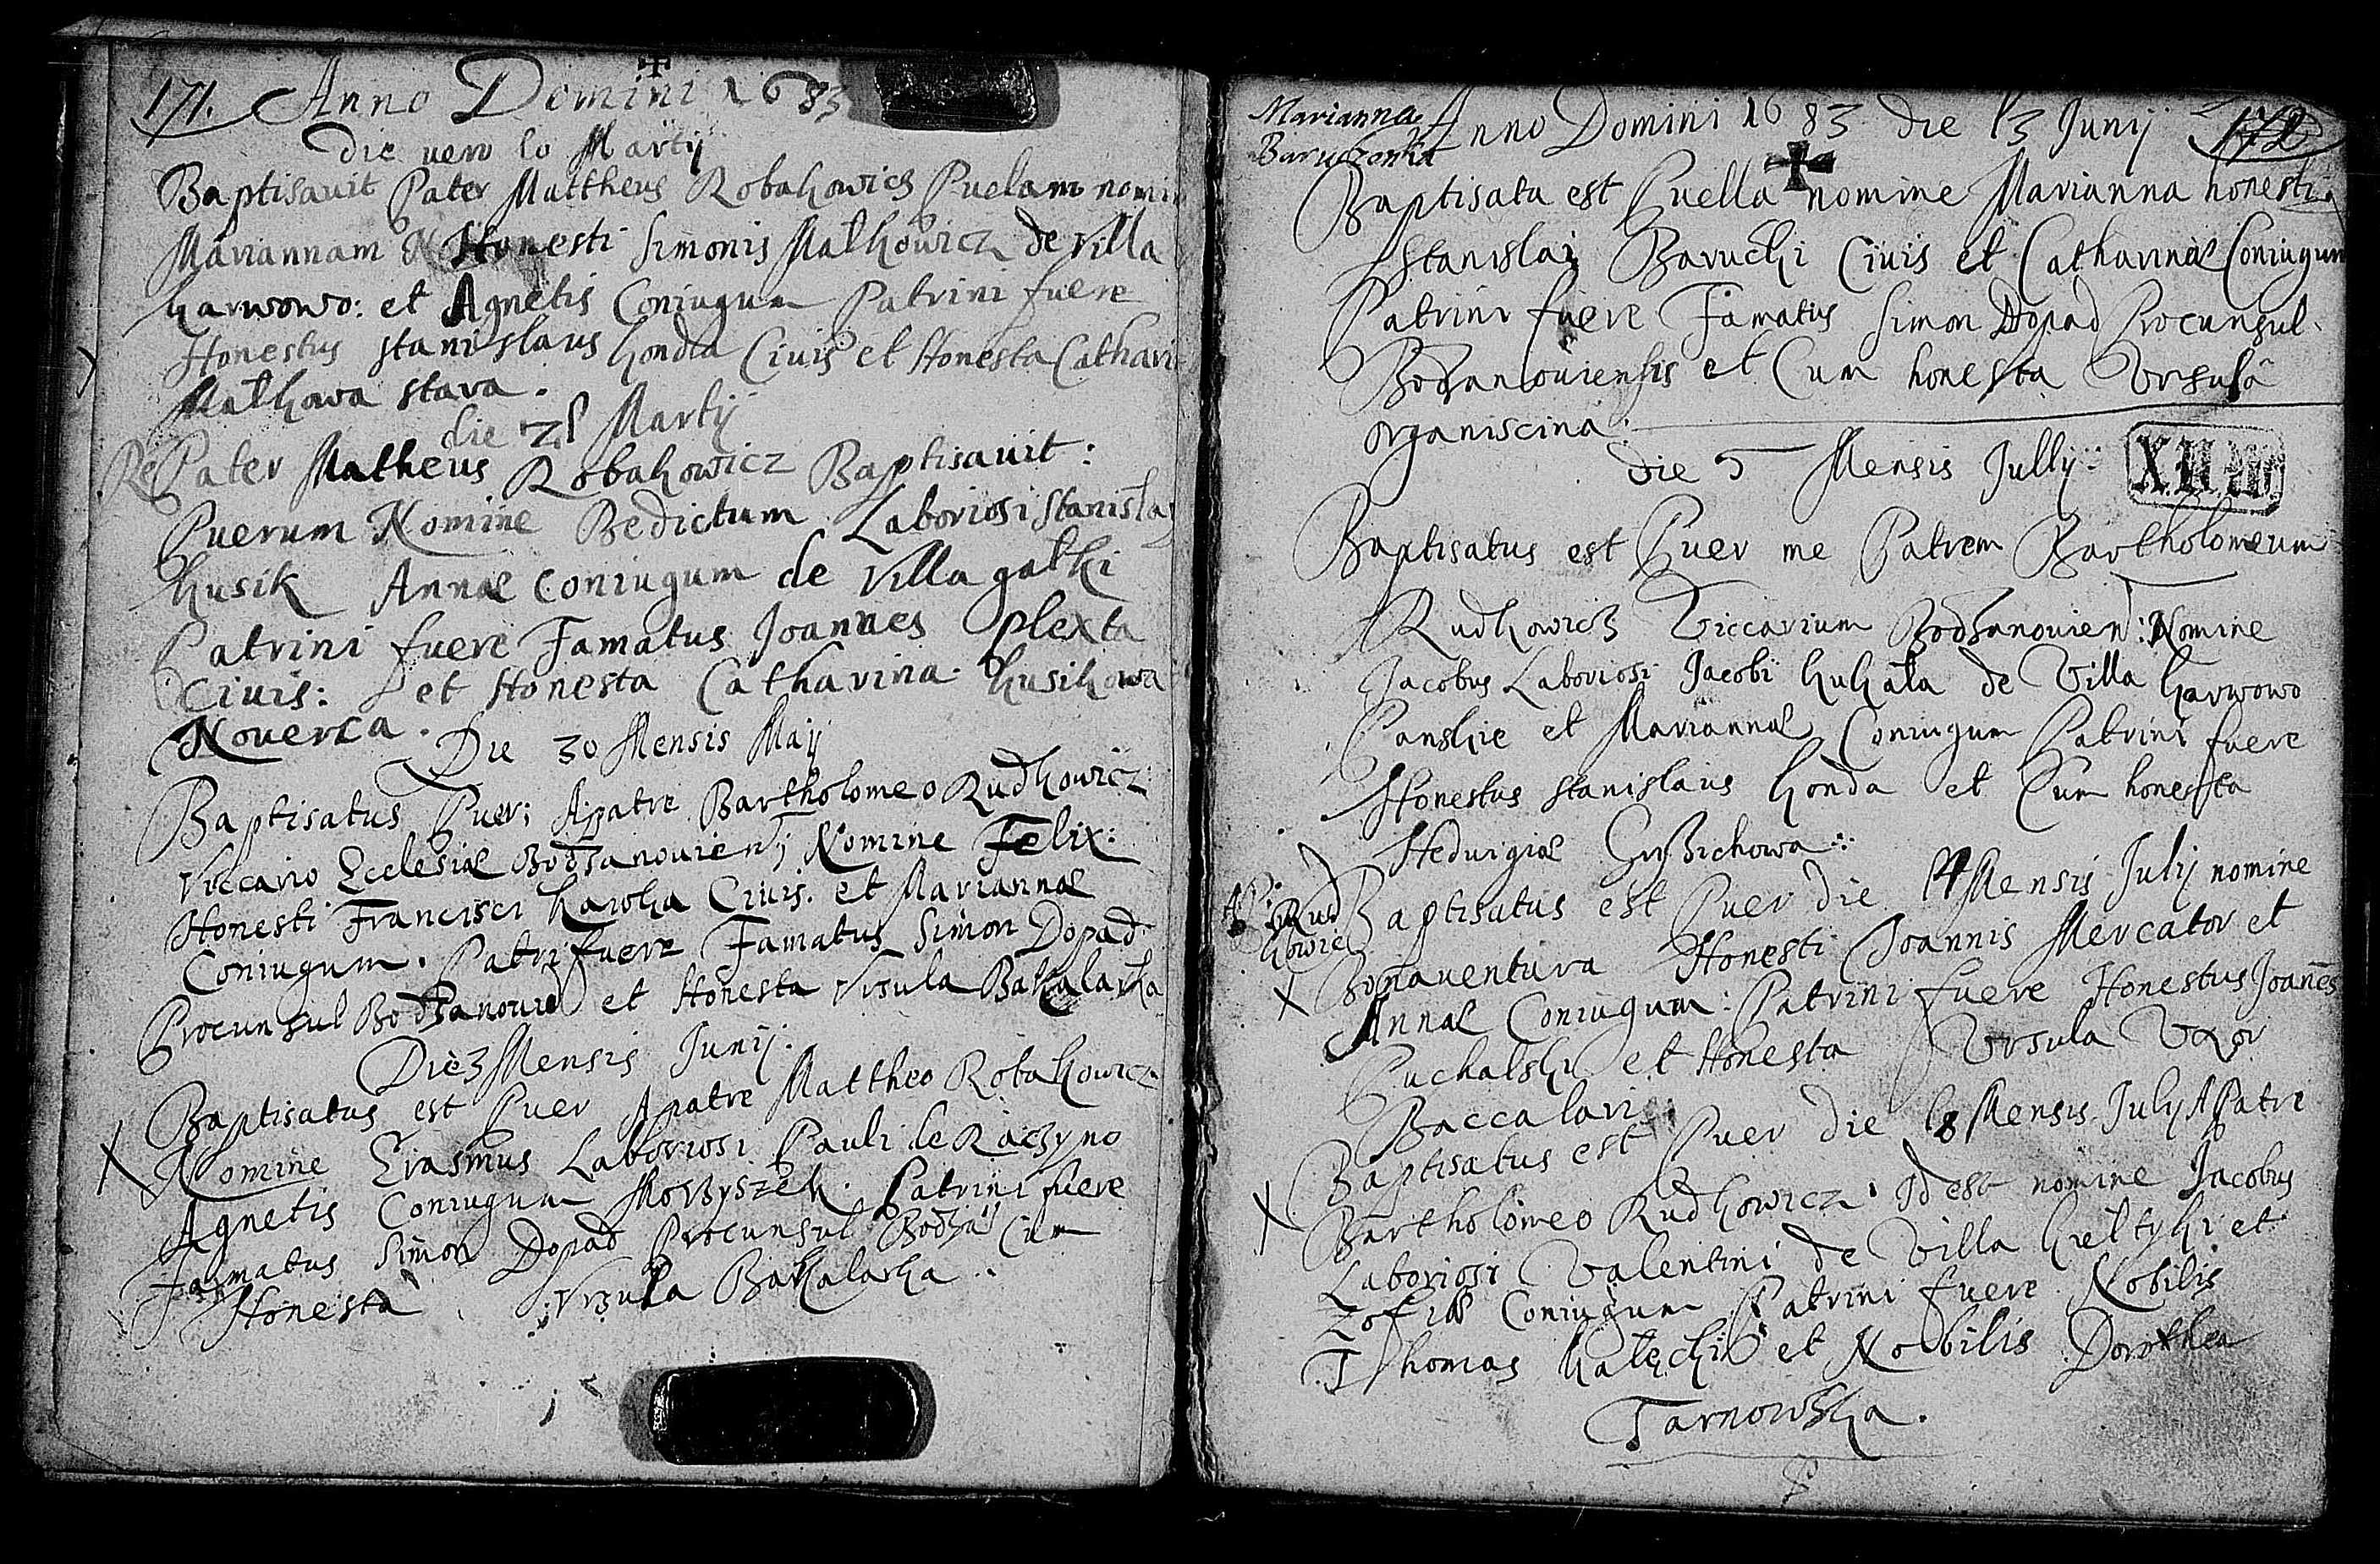 171. Anno Domini 1683
die vero 10 Martij
Baptisavit Pater Mattheus Robakowicz Puelam nomi
Mariannam Honesti Simonis Malkowicz de villa
Karwowo: et Agnetis Coniugum Patrini fuere
Honestus Stanislaus Konda Ciuis et Honesta Cathari
Malkowa stara.
die 21 Martij
Pater Matheus Robakowicz Baptisavit:
Puerum Nomine Bedictum Laboriosi Stanislaj
Kusik Annae Coniugum de Villa gatki
Patrini fuere Famatus Joannes Plexta
Ciuis: et Honesta Catharina Kusikowa
Nouerca.
Die 30 Mensis Maij
Baptisatus Puer; Apatre Bartholomeo Rudkowicz
Viccario Ecclesiae Bodzanouien; Nomine Felix:
Honesti Francisci Kawka Ciuis. et Mariannae
Coniugum. Patri fuere Famatus Simon Dopad
Procunsul Bodzanouie et Honesta Vrsula Bakalarka
Die 3 Mensis Junij.
Baptisatus est Puer Apatre Mattheo Robakowicz
Nomine Erasmus Laboriosi Pauli de Raczyno
Agnetis Coniugum Patrini fuere
Famatus Simon Dopad Procunsul Bodza Cum
Honesta Vrsula Bakalarka..
Marianna
Baruczonka
Anno Domini 1683 die 13 Junij 172
Baptisata est Puella nomine Marianna honesti
Stanislai Baruchi Ciuis et Catharinae Coniugum
Patrini fuere Famatus Simon Dopad Procunsul.
Bodzanouiensis et Cum honesta Vrsula
organiscina.
die 5 Mensis Jullij:
Baptisatus est Puer me Patrem Bartholomeum
Rudkowicz Viccarium Bodzanouien: Nomine
Jacobus Laboriosi Jacobi Kukala de Villa Karwowo
Panskie et Mariannae Coniugum Patrini fuere
Honestus Stanislaus Konda et Cum honesta
Heduigiae Grzbichowa
A P:
Rud
kowic
Baptisatus est Puer die 14 Mensis Julij nomine
Bonauentura Honesti Joannis Mercator et
Annae Coniugum: Patrini fuere Honestus Joanes
Puchalski et Honesta Vrsula Vxor
Baccalari:
Baptisatus est Puer die 18 Mensis Julij A Patre
Bartholomeo Rudkowicz Id est nomine Jacobus
Laboriosi Valentini de Villa Kieltyki et
Zofiae Coniugum Patrini fuere Nobilis
Thomas et Nobilis Dorothea
Tarnowska.